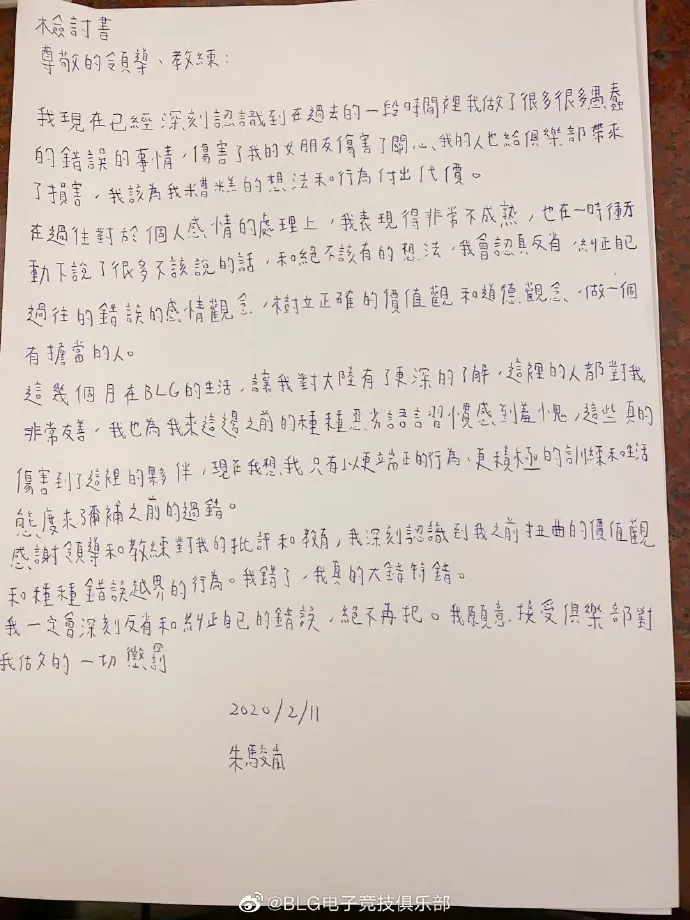 檢討書
尊敬的領導、教練:
我現在已經深刻認識到在過去的一段時間裡我做了很多很多愚蠢
的錯誤的事情,傷害了我的女朋友傷害了關心我的人也給俱樂部帶來
了損害,我該為我糟糕的想法和行為付出代價。
在過往對於個人感情的處理上,我表現得非常不成熟,也在一時衝
動下說了很多不該說的話,和絕不該有的想法,我會認真反省,糾正自己
過往的錯誤的感情觀念,樹立正確的價值觀和道德觀念,做一個
有擔當的人。
這幾個月在BLG的生活,讓我對大陸有了更深的了解,這裡的人都對我
非常友善,我也為我來這邊之前的種種惡劣語言習慣感到羞愧,這些真的
傷害到了這裡的夥伴,現在我想,我只有以更端正的行為、更積極的訓練和生活
態度來彌補之前的過錯。
感謝領導和教練對我的批評和教育,我深刻認識到我之前扭曲的價值觀
和種種錯誤越界的行為。我錯了,我真的大錯特錯。
我一定會深刻反省和糾正自己的錯誤,絕不再犯。我願意接受俱樂部對
我做的一切懲罰
2020/2/11
朱駿嵐
@BLG电子竞技俱乐部